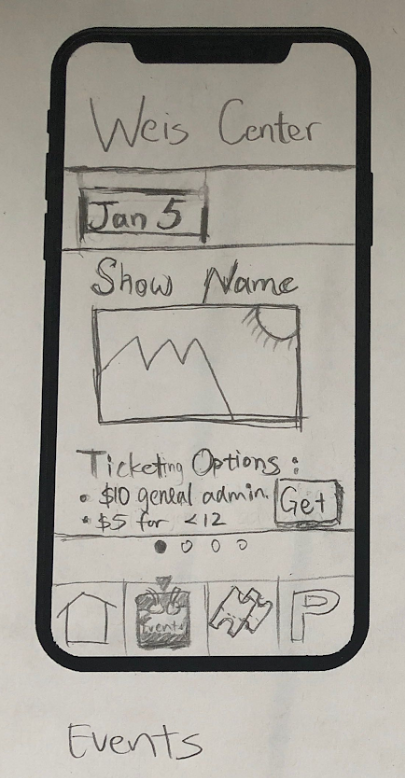 Weis Center
Jan 5
Show Name
Ticketing Options:
• $10 geneal admin.
• $5 for <12
Get
Events
P
Events